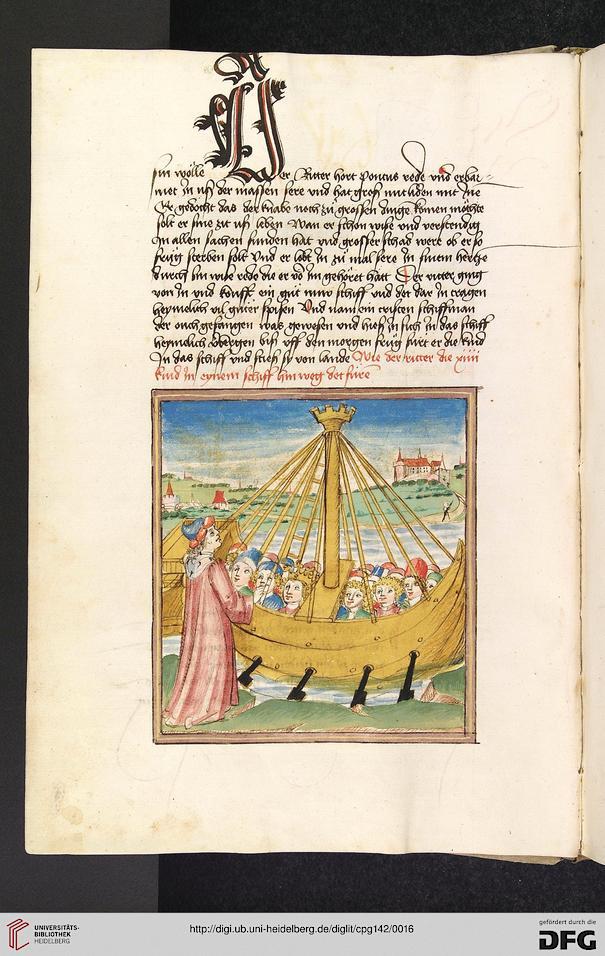 sin wölle Der Ritter hort pontus rede vnd erbar-
met in vß der massen sere vnd hat groß mitliden mit jne
Er gedocht das der knabe noch zü grossen dinge komen möchte
solt er sine zit vß leben Wan er schon wise vnd verstendig
In allen sachen funden hat vnd grosser schad were ob er so
feüg sterben solt Vnd er lobt in zü mal sere in sinem hertze
durch sin wise rede die er võ im gehöret hatt Der ritter ging
von in vnd koufft ein güt nuw schiff vnd det dar in tragen
heymelich vil güter spisen Vnd nam ein cristen schiffman
der ouch gefangen was gewesen vnd hieß in sich in das schiff
heymelich verbergen biß vff den morgen feüg fürt er die kind
In das schiff vnd stieß sy von lande Wie der ritter die xiiii
kind in eynem schiff hinweg det füre
UNIVERSITÄTS-
BIBLIOTHEK
HEIDELBERG
http://digi.ub.uni-heidelberg.de/diglit/cpg142/0016
gefördert durch die
DFG